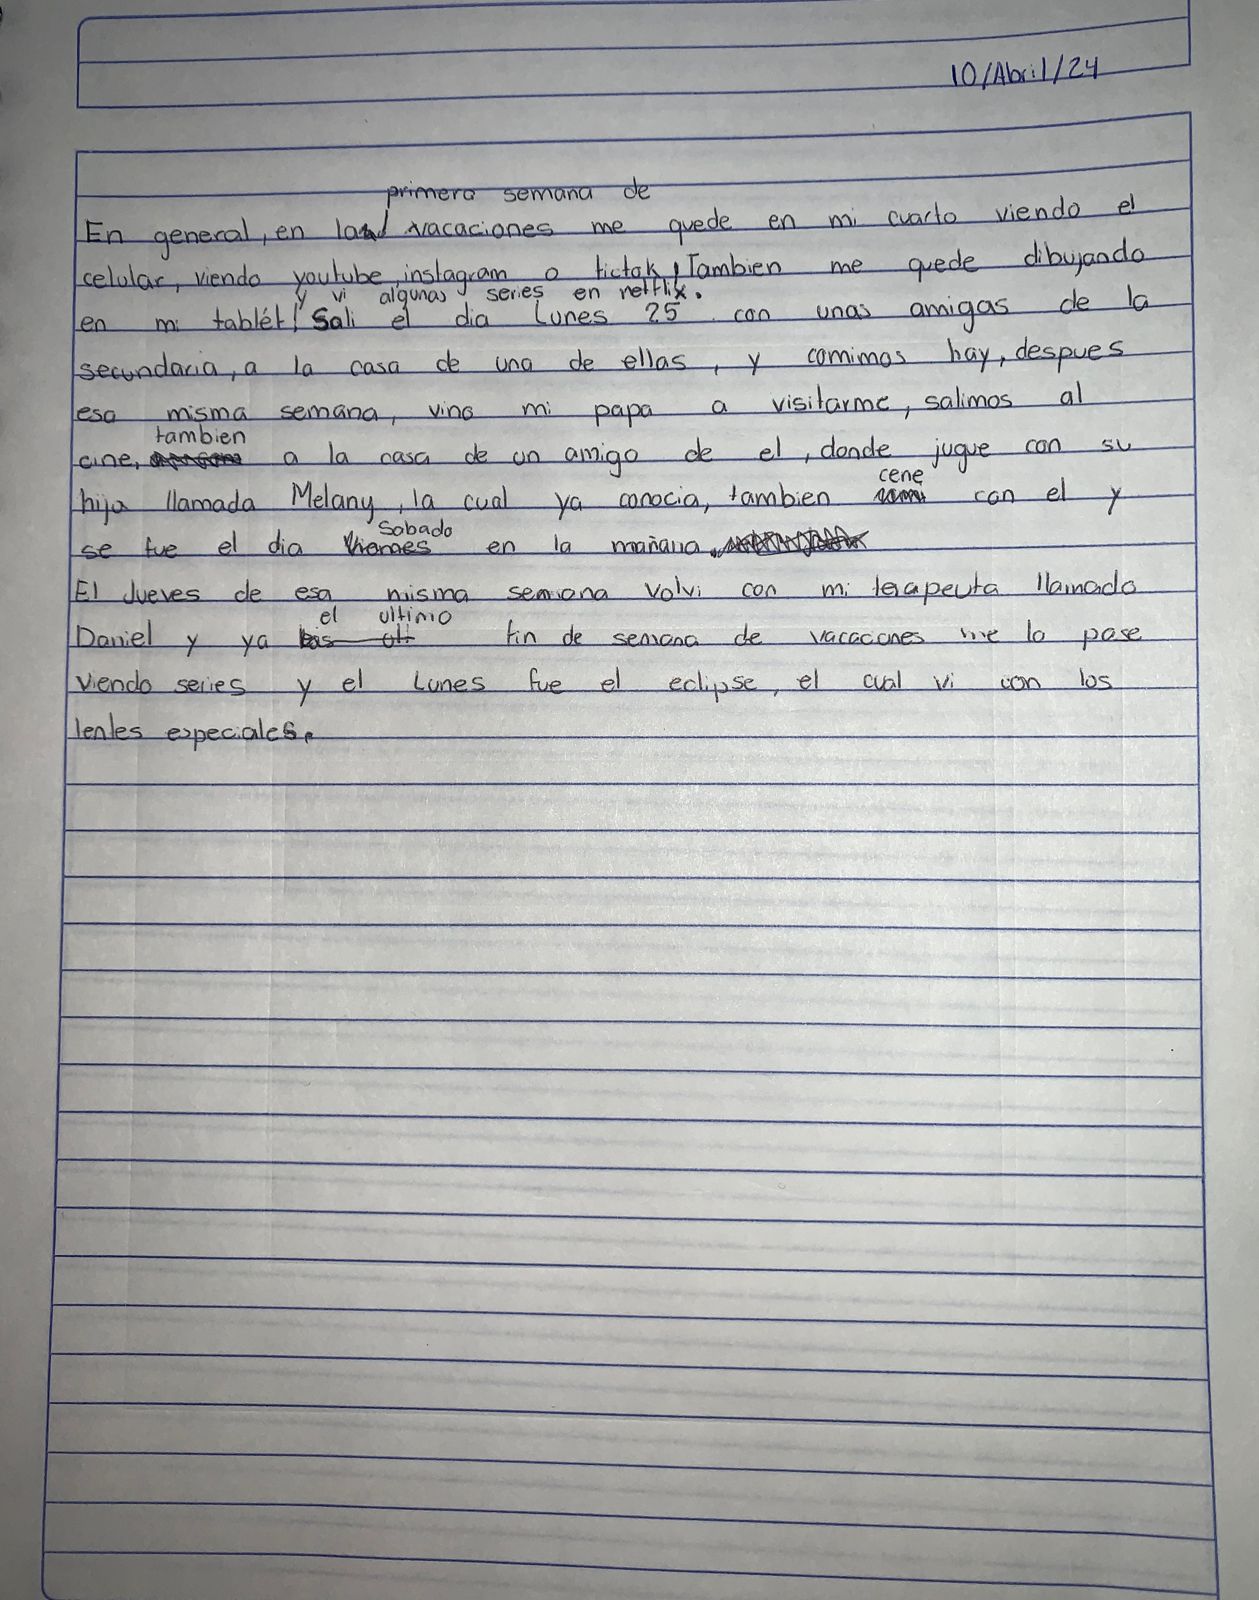 10/Abril/24
primera semana de
En general, en la vacaciones me quede en mi cuarto viendo el
celular, viendo youtube, instagram o tictok, Tambien me quede dibujando
y vi algunas series en netflix.
en mi tablét! Sali el dia Lunes 25 con unas amigas de la
secundaria, a la casa de una de ellas, y comimos hay, despues
esa misma semana, vino mi papa a visitarme, salimos al
tambien
cine, a la casa de un amigo de el, donde jugue con su
cene
hija llamada Melany, la cual ya conocia, tambien con el y
Sabado
se fue el dia Viernes en la mañana.
El Jueves de esa misma semana volvi con mi terapeuta llamado
el ultimo
Daniel y ya las ult fin de semana de vacaciones me la pase
viendo series y el Lunes fue el eclipse, el cual vi con los
lentes especiales.